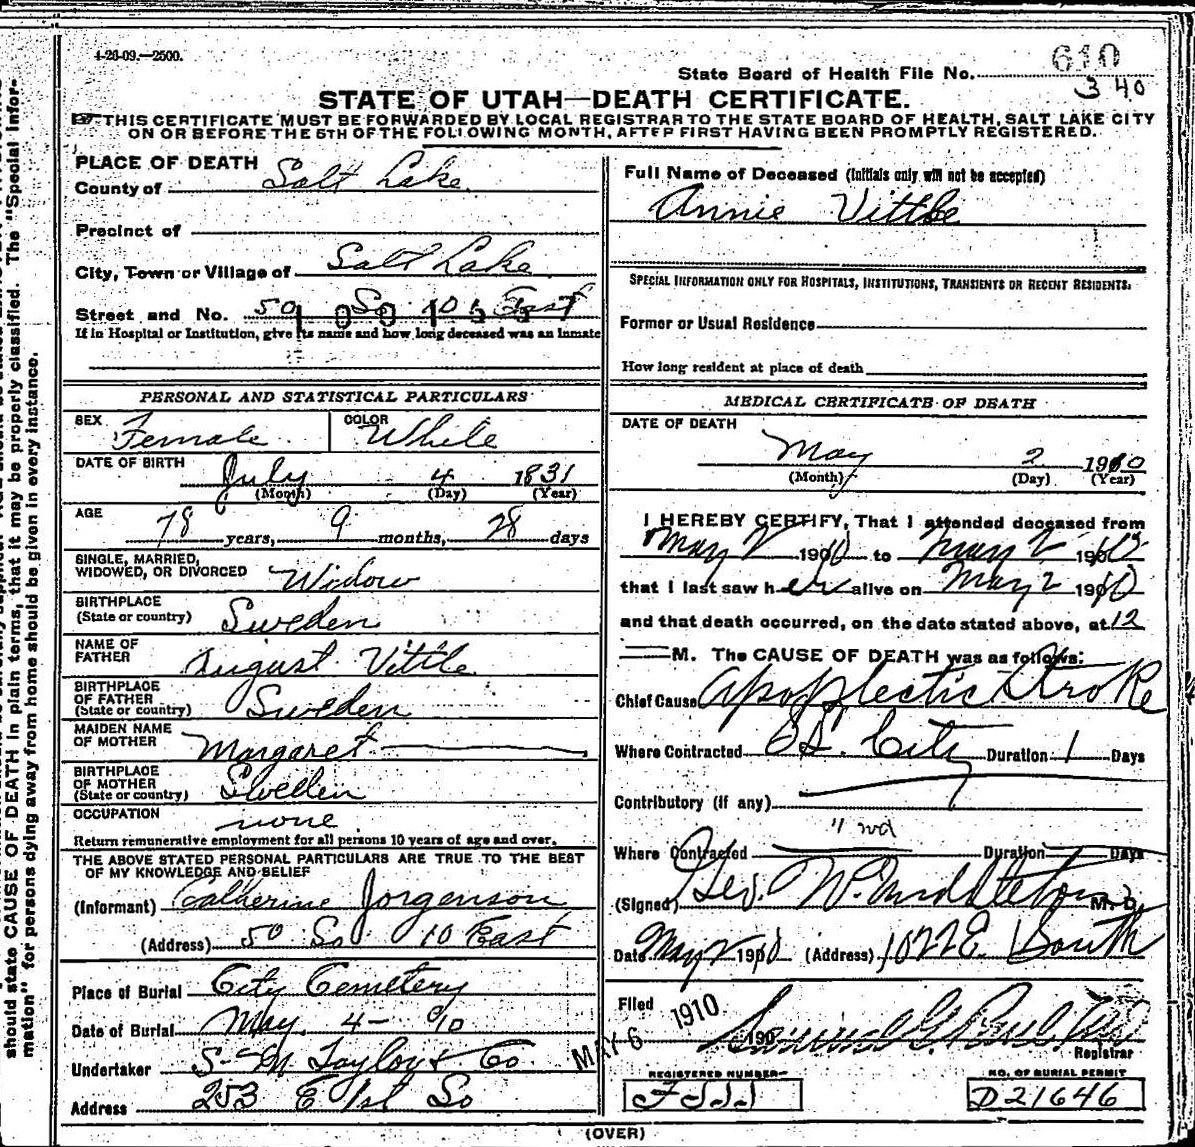 4-26-09.—2500.
610
State Board of Health File No.
340
STATE OF UTAH—DEATH CERTIFICATE.
THIS CERTIFICATE MUST BE FORWARDED BY LOCAL REGISTRAR TO THE STATE BOARD OF HEALTH, SALT LAKE CITY
ON OR BEFORE THE 5TH OF THE FOLLOWING MONTH, AFTER FIRST HAVING BEEN PROMPTLY REGISTERED.
PLACE OF DEATH
County of Salt Lake
Precinct of
City, Town or Village of Salt Lake
Street and No. 50 So 10 East
If in Hospital or Institution, give its name and how long deceased was an inmate
PERSONAL AND STATISTICAL PARTICULARS
SEX Female COLOR White
DATE OF BIRTH July 4 1831
(Month) (Day) (Year)
AGE 78 years, 9 months, 28 days
SINGLE, MARRIED,
WIDOWED, OR DIVORCED Widow
BIRTHPLACE
(State or country) Sweden
NAME OF
FATHER August Vittle
BIRTHPLACE
OF FATHER
(State or country) Sweden
MAIDEN NAME
OF MOTHER Margaret
BIRTHPLACE
OF MOTHER
(State or country) Sweden
OCCUPATION none
Return remunerative employment for all persons 10 years of age and over.
THE ABOVE STATED PERSONAL PARTICULARS ARE TRUE TO THE BEST
OF MY KNOWLEDGE AND BELIEF
(Informant) Catherine Jorgenson
(Address) 50 So 10 East
Place of Burial City Cemetery
Date of Burial May 4 - 910
Undertaker S-M Taylor & Co.
Address 253 E 1st So
Full Name of Deceased (Initials only will not be accepted)
Annie Vittle
SPECIAL INFORMATION ONLY FOR HOSPITALS, INSTITUTIONS, TRANSIENTS OR RECENT RESIDENTS.
Former or Usual Residence
How long resident at place of death
MEDICAL CERTIFICATE OF DEATH
DATE OF DEATH
May 2 1910
(Month) (Day) (Year)
I HEREBY CERTIFY, That I attended deceased from
May 2 1910 to May 2 1910
that I last saw her alive on May 2 1910
and that death occurred, on the date stated above, at 12
M. The CAUSE OF DEATH was as follows:
Chief Cause Apoplectic Stroke
Where Contracted S L. City Duration 1 Days
Contributory (if any)
Where Contracted Duration Days
(Signed) Geo. W. Middleton M. D.
Date May 2 1910 (Address) 1022 E. 1 South
Filed MAY 6 1910 190
Registrar
REGISTERED NUMBER NO. OF BURIAL PERMIT
D21646
(OVER)
should state CAUSE OF DEATH in plain terms, that it may be properly classified. The "Special Infor-
mation" for persons dying away from home should be given in every instance.